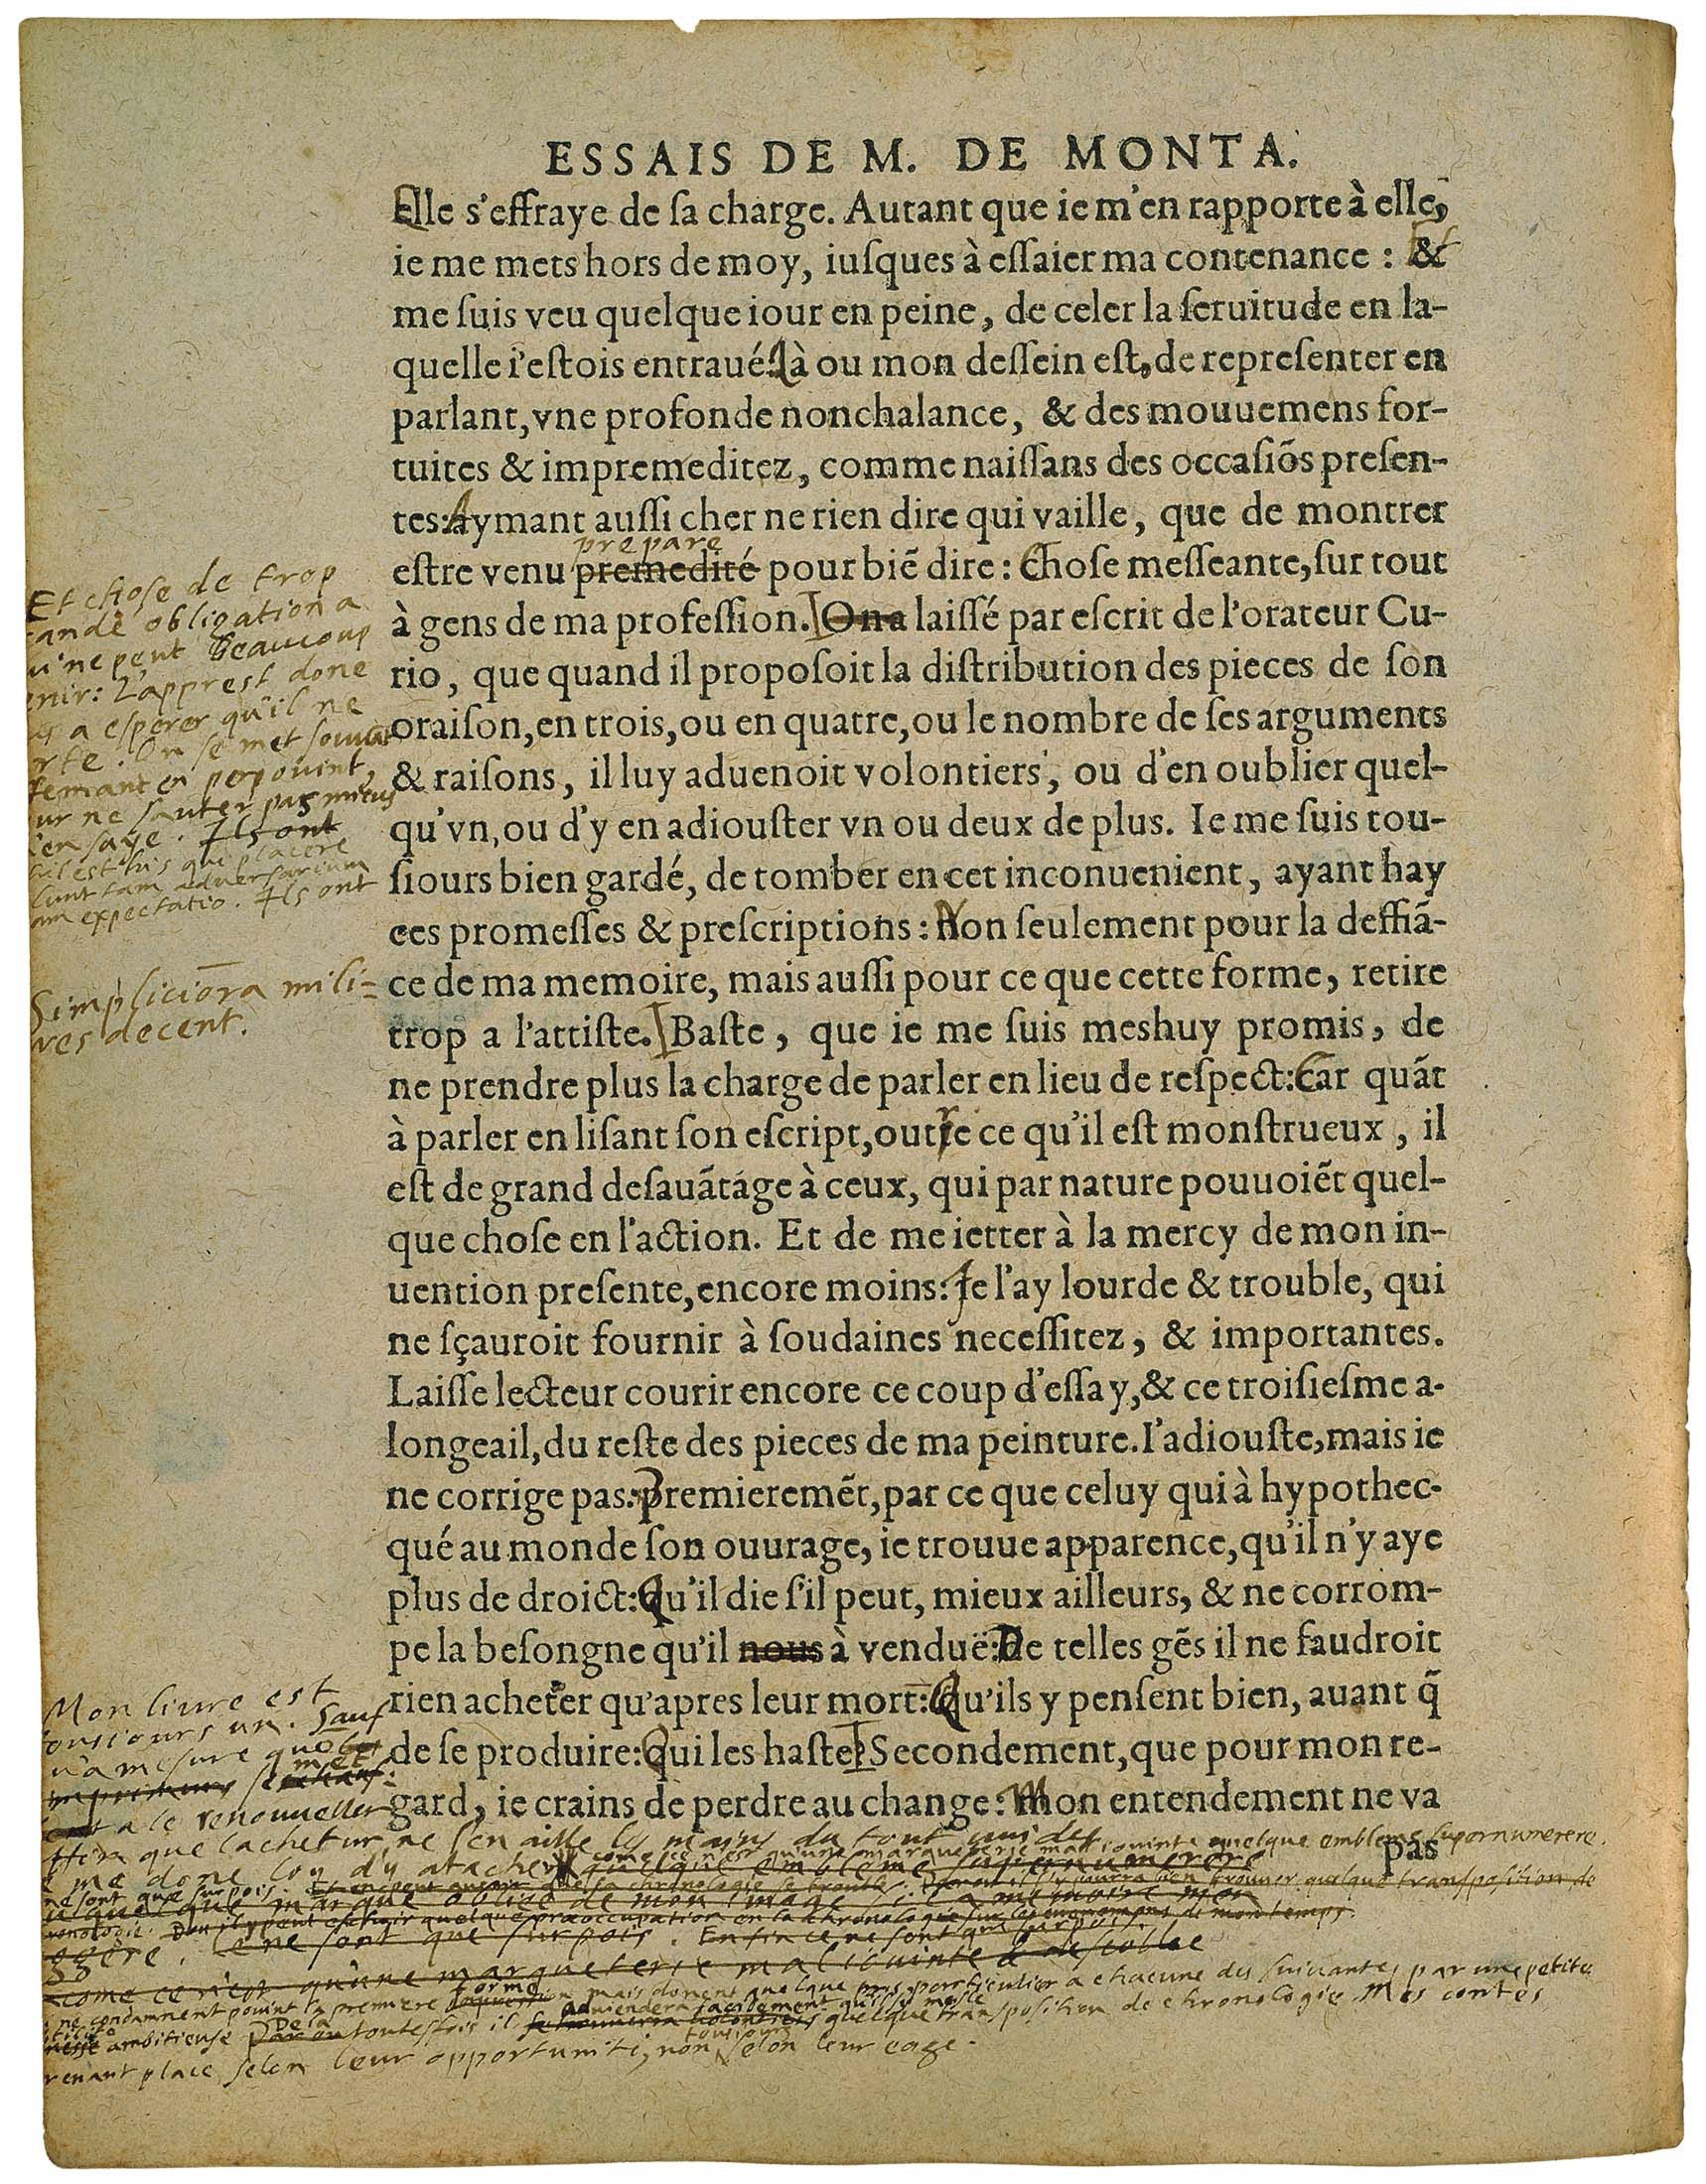 ESSAIS DE M. DE MONTA.
Elle s'effraye de ſa charge. Autant que ie m'en rapporte à elle,
ie me mets hors de moy, iuſques à eſſaier ma contenance : Et
me ſuis veu quelque iour en peine, de celer la ſeruitude en la-
quelle i'eſtois entraué. Là ou mon deſſein eſt, de repreſenter en
parlant, vne profonde nonchalance, & des mouuemens for-
tuites & impremeditez, comme naiſſans des occaſiõs preſen-
tes: Aymant auſſi cher ne rien dire qui vaille, que de montrer
prepare
eſtre venu premedité pour biẽ dire : Choſe meſſeante, ſur tout
à gens de ma profeſſion. On a laiſſé par eſcrit de l'orateur Cu-
rio, que quand il propoſoit la diſtribution des pieces de ſon
oraiſon, en trois, ou en quatre, ou le nombre de ſes arguments
& raiſons, il luy aduenoit volontiers, ou d'en oublier quel-
qu'vn, ou d'y en adiouſter vn ou deux de plus. Ie me ſuis tou-
ſiours bien gardé, de tomber en cet inconuenient, ayant hay
ces promeſſes & preſcriptions : Non ſeulement pour la deffiã-
ce de ma memoire, mais auſſi pour ce que cette forme, retire
trop a l'artiſte. Baſte, que ie me ſuis meshuy promis, de
ne prendre plus la charge de parler en lieu de reſpect: Car quãt
à parler en liſant ſon eſcript, outre ce qu'il eſt monſtrueux, il
eſt de grand deſauãtage à ceux, qui par nature pouuoiẽt quel-
que choſe en l'action. Et de me ietter à la mercy de mon in-
uention preſente, encore moins: Ie l'ay lourde & trouble, qui
ne ſçauroit fournir à ſoudaines neceſſitez, & importantes.
Laiſſe lecteur courir encore ce coup d'eſſay, & ce troiſieſme a-
longeail, du reſte des pieces de ma peinture. I'adiouſte, mais ie
ne corrige pas: Premieremẽt, par ce que celuy qui à hypothec-
qué au monde ſon ouurage, ie trouue apparence, qu'il n'y aye
plus de droict: Qu'il die s'il peut, mieux ailleurs, & ne corrom-
pe la beſongne qu'il nous à venduë: De telles gẽs il ne faudroit
rien acheter qu'apres leur mort: Qu'ils y penſent bien, auant q̃
de ſe produire: Qui les haſte? Secondement, que pour mon re-
gard, ie crains de perdre au change: Mon entendement ne va
pas
Et chose de trop
ande obligation a
ui ne peut beaucoup
enir: L'apprest done
a esperer qu'il ne
rte. On se met souuant
temant en porpouint,
ur ne sauter pas mieus
en saye. Ils ont
il est his qui placere
sunt tam aduersarium
am expectatio. Ils ont
Simpliciora mili-
res decent.
Mon liure est
ousiours un. Sauf
u'a mesure qu'on
se met
a le renouueller
que l'achetur ne s'en aille les mains du tout vuides
me done loy d'y atacher
come ce n'est qu'une marqueterie mal iouinte quelque embleme supernumerere.
ne sont que surpois.
quelque marque oblique de mon image
ce ne sont que surpois.
come ce n'est qu'une marqueterie mal iouinte
ne condamnent pouint la premiere forme mais donent quelque pris particulier a chacune des suiuantes par une petite
ambitieuse De la toutesfois il aduiendera facilement qu'il s'y mesle quelque transposition de chronologie Mes contes
renant place selon leur opportunite, non tousiours selon leur eage.